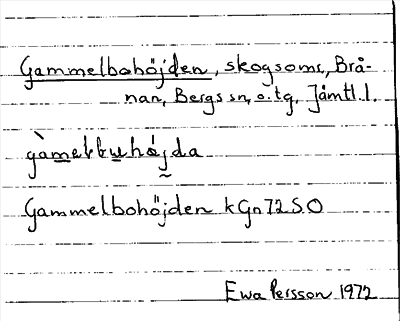 Gammelbohöjden, skogsomr, Brå-
nan, Bergs sn, o. tg, Jämtl. l.
gàmelbuhö́jda
Gammelbohöjden kGn72SO
Ewa Persson 1972